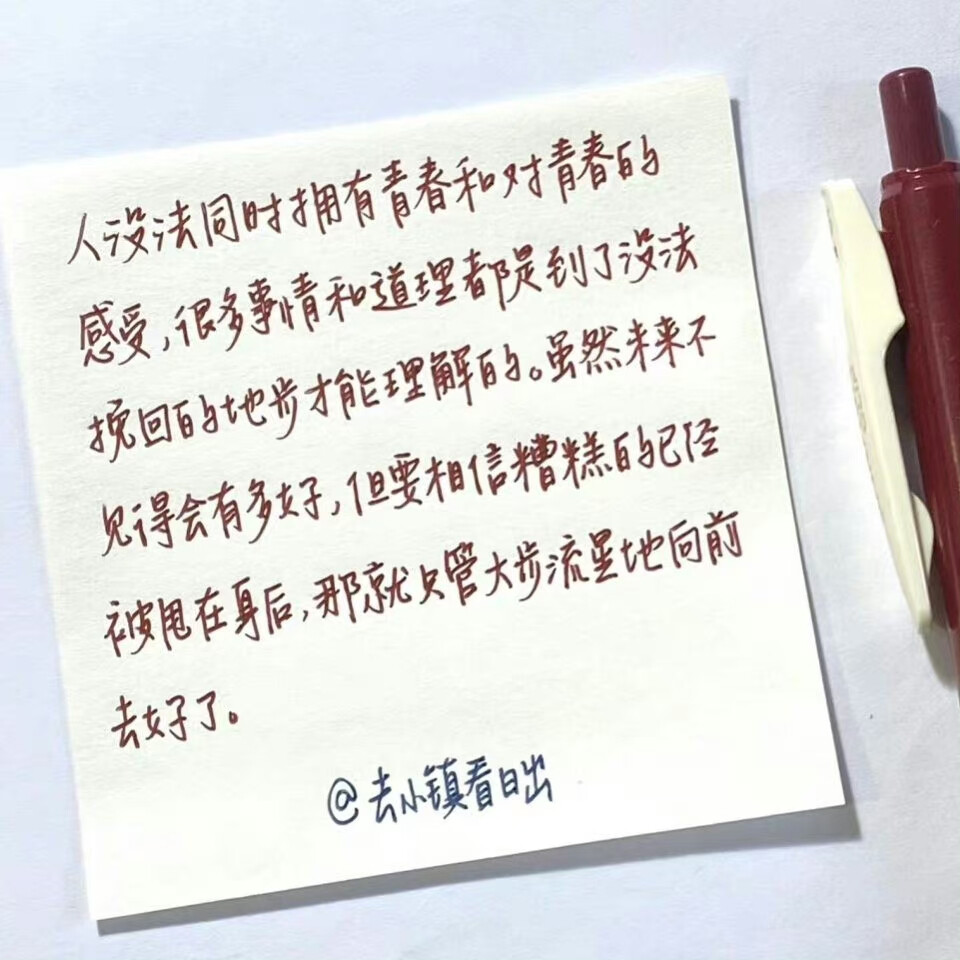 人没法同时拥有青春和对青春的
感受,很多事情和道理都是到了没法
挽回的地步才能理解的。虽然未来不
见得会有多好,但要相信糟糕的已经
被甩在身后,那就只管大步流星地向前
去好了。
@去小镇看日出